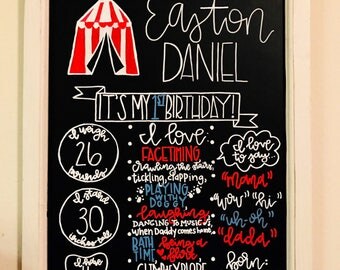 Easton
DANIEL
IT'S MY 1ST BIRTHDAY!
I weigh
26
pounds
I stand
30
inches tall
I have
I love:
FACETIMING
crawling the stairs,
tickling, clapping,
PLAYING
WITH
DOGGY
laughing
DANCING TO MUSIC
when Daddy comes home,
BATH
TIME
being a
I love
to say:
"mama"
"you" "hi"
"uh-oh"
"dada"
Born: